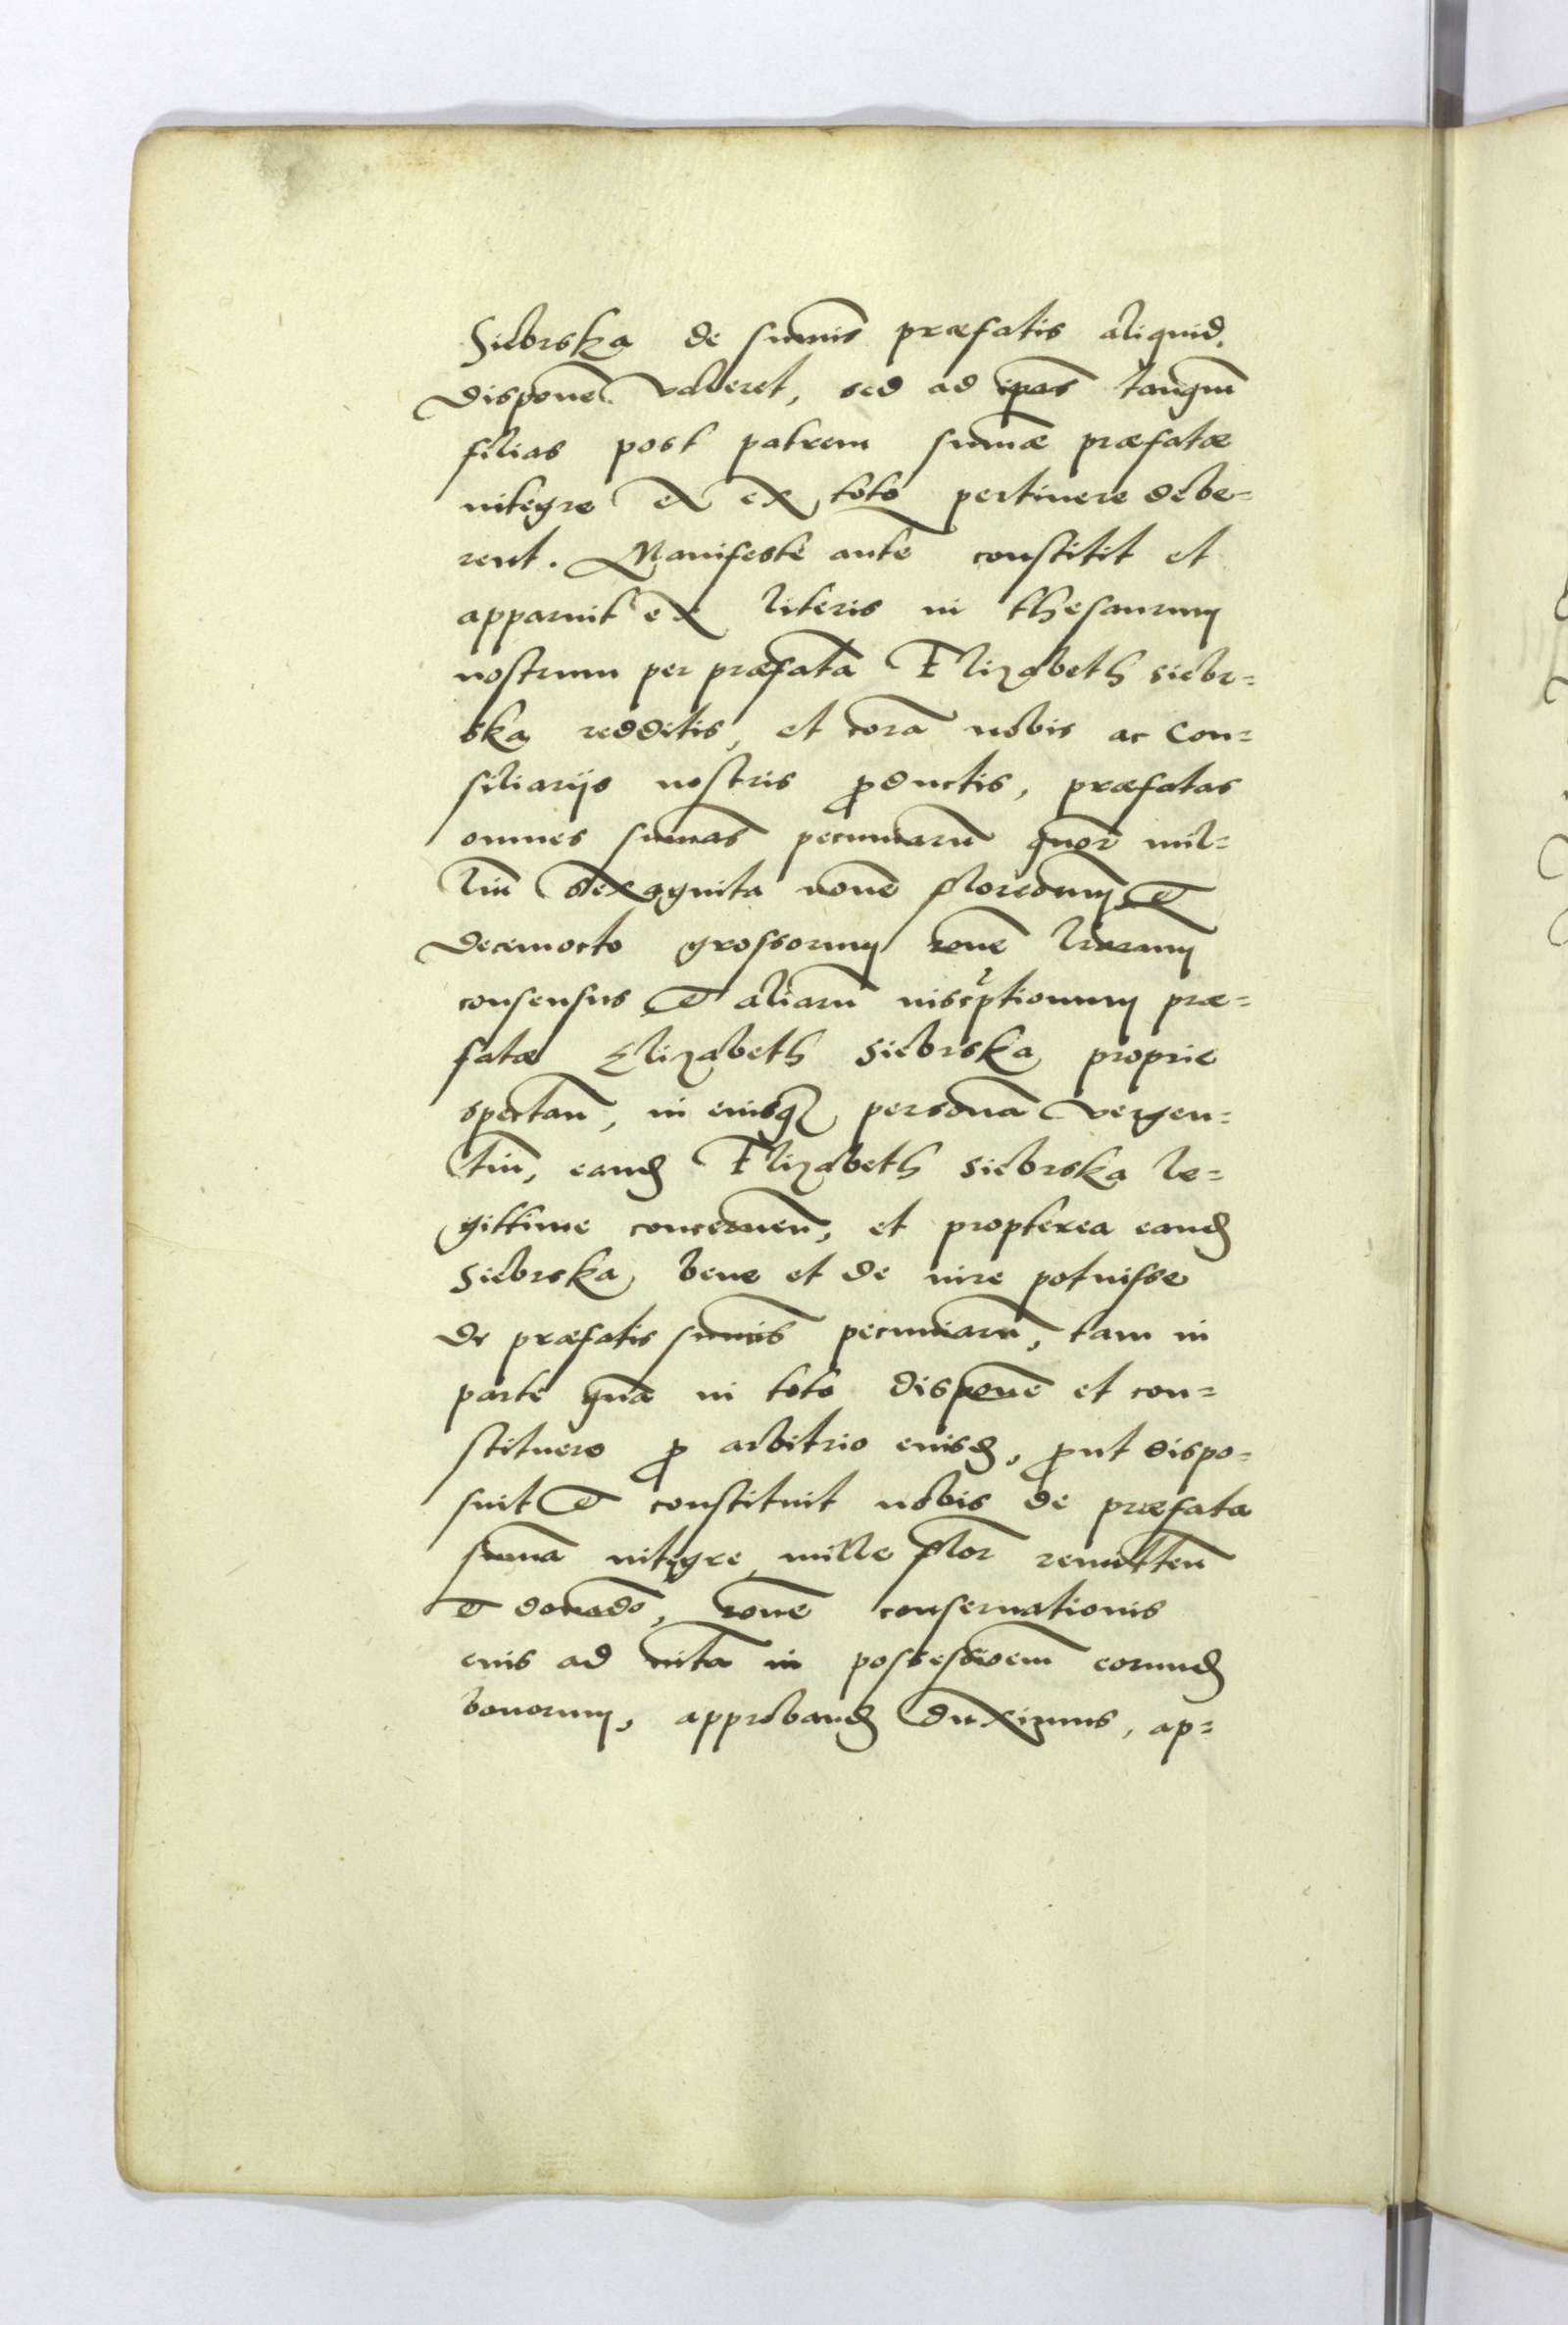 Siebrska de sum̄is præfatis aliquid
disponē valeret, sed ad ip̄as tanq̄m
filias post patrem sum̄æ præfatæ
integre et ex toto pertinere debe=
rent. Manifeste autē constitit et
apparuit ex literis in thesaurum
nostrum per præfatā Elizabeth Siebr=
ska redditis, et corā nobis ac Con=
siliarijs nostris ꝓductis, præfatas
omnes sum̄as pecuniarū quor̄ mil=
liū sexaginta nouē florenorum et
decemocto grossorum rōne l̄rarum
consensus et aliarū inscriptionum præ=
fatæ Elizabeth Siebrska proprie
spectan̄, in eiusq̃ personā vergen=
tiū, eandꝫ Elizabeth Siebrska le=
gittime concernen̄, et propterea eandꝫ
Siebrska bene et de iure potuisse
de præfatis sum̄is pecuniarū, tam in
parte quā in toto disponē et con=
stituere ꝓ arbitrio eiusdꝫ, ꝓut dispo=
suit et constituit nobis de præfata
sum̄a integre mille flor̄ remitten̄
et donādo, rōne conseruationis
eius ad vitā in possessioēm eorundꝫ
bonorum, approbandꝫ duximus, ap=